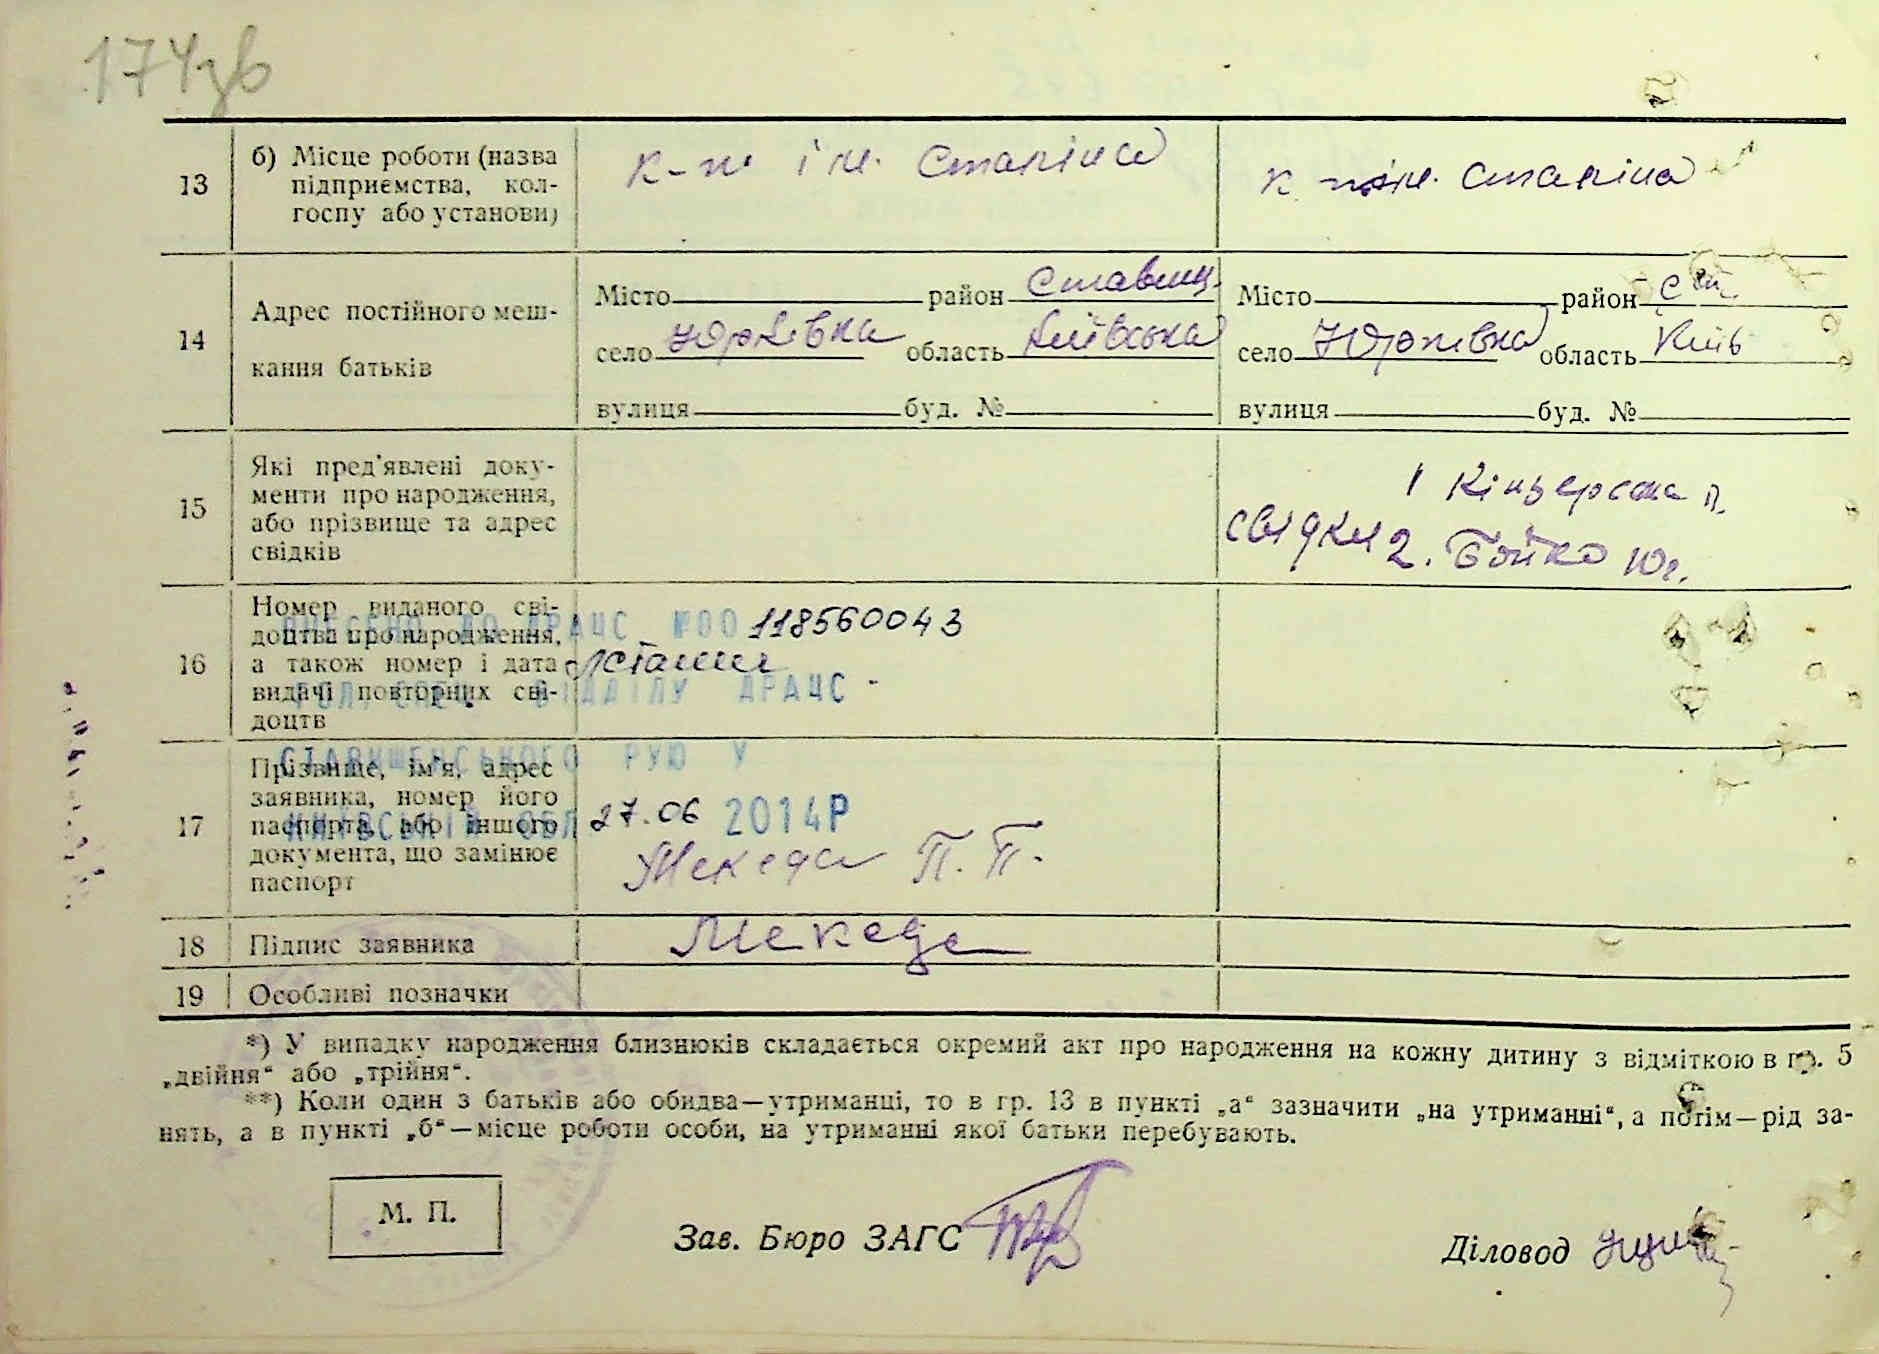 174зв
13
б) Місце роботи (назва
підприємства, кол-
госпу або установи)
к-п ім. Сталіна
к-п ім. Сталіна
14
Адрес постійного меш-
кання батьків
Місто район Ставищ.
село Юрківка область Київська
вулиця буд. №
Місто район Ст.
село Юрківка область Київ
вулиця буд. №
15
Які пред'явлені доку-
менти про народження,
або прізвище та адрес
свідків
1 п.
свідки 2. Бойко Юг.
16
Номер виданого сві-
доцтва про народження,
а також номер і дата
видачі повторних сві-
доцтв
ВНЕСЕНО ДО ДРАЦС №00 118560043
ГОЛ. СПЕЦ. ВІДДІЛУ ДРАЦС
СТАВИЩЕНСЬКОГО РУЮ У
КИЇВСЬКІЙ ОБЛ 27.06 2014Р
17
Прізвище, ім'я, адрес
заявника, номер його
паспорта, або іншого
документа, що замінює
паспорт
Мекеда П. П.
18
Підпис заявника
Мекеда
19
Особливі позначки
*) У випадку народження близнюків складається окремий акт про народження на кожну дитину з відміткою в гр. 5
„двійня“ або „трійня“.
**) Коли один з батьків або обидва—утриманці, то в гр. 13 в пункті „а“ зазначити „на утриманні“, а потім—рід за-
нять, а в пункті „б“—місце роботи особи, на утриманні якої батьки перебувають.
М. П.
Зав. Бюро ЗАГС
Діловод